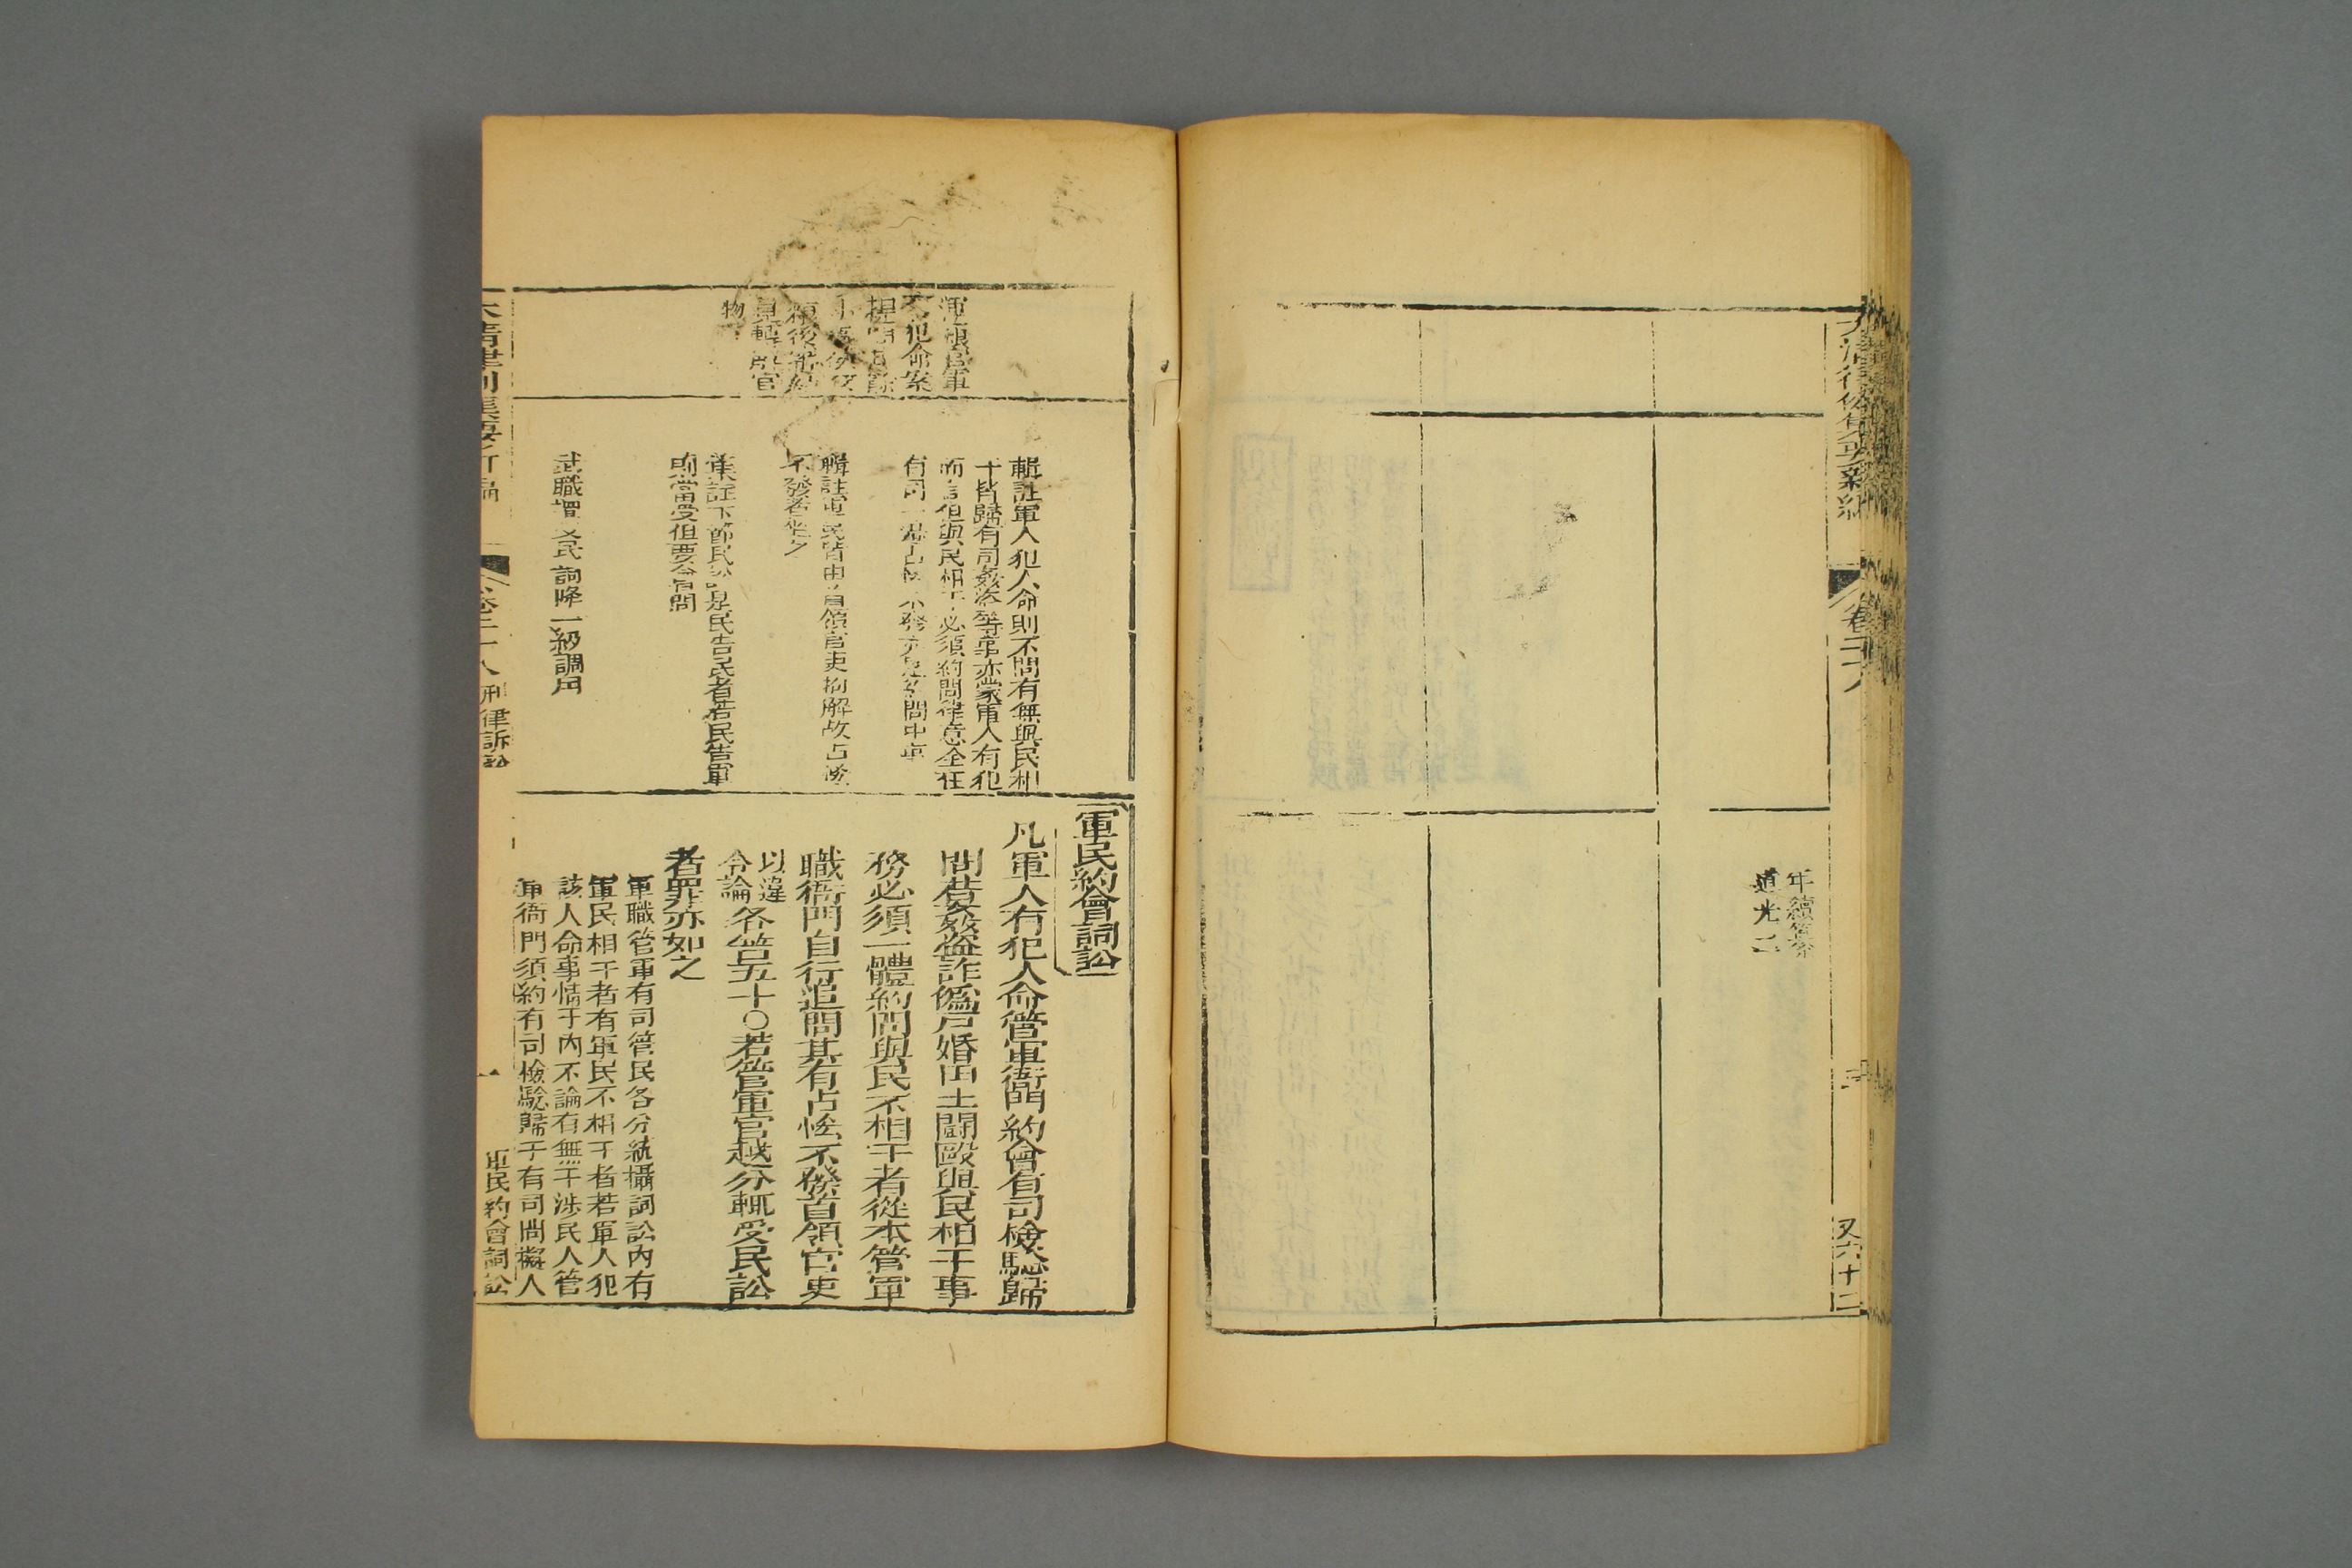 年續纂
道光二
卷二十八
又六十二
軍民約會詞訟
凡軍人有犯人命管軍衙門約會有司檢驗歸
問若姦盜詐僞戶婚田土鬭毆與民相干事
務必須一體約問與民不相干者從本管軍
職衙門自行追問其有占恡不發首領官吏
以違
令論
各笞五十○若管軍官越分輒受民訟
者罪亦如之
軍職管軍有司管民各分統攝詞訟內有
軍民相干者有軍民不相干者若軍人犯
該人命事情于內不論有無干涉民人管
軍衙門須約有司檢驗歸于有司問擬人
輯註軍人犯人命則不問有無與民相
干皆歸有司姦盜等事亦蒙軍人有犯
而言但與民相干必須約問律意全在
輯註軍民皆由首領官吏拘解故占恡
不發者坐之
集註下節民訟是民告民者若民告軍
則當受但要會有司問
武職擅受民詞降一級調用
刑律訴訟
軍民約會詞訟